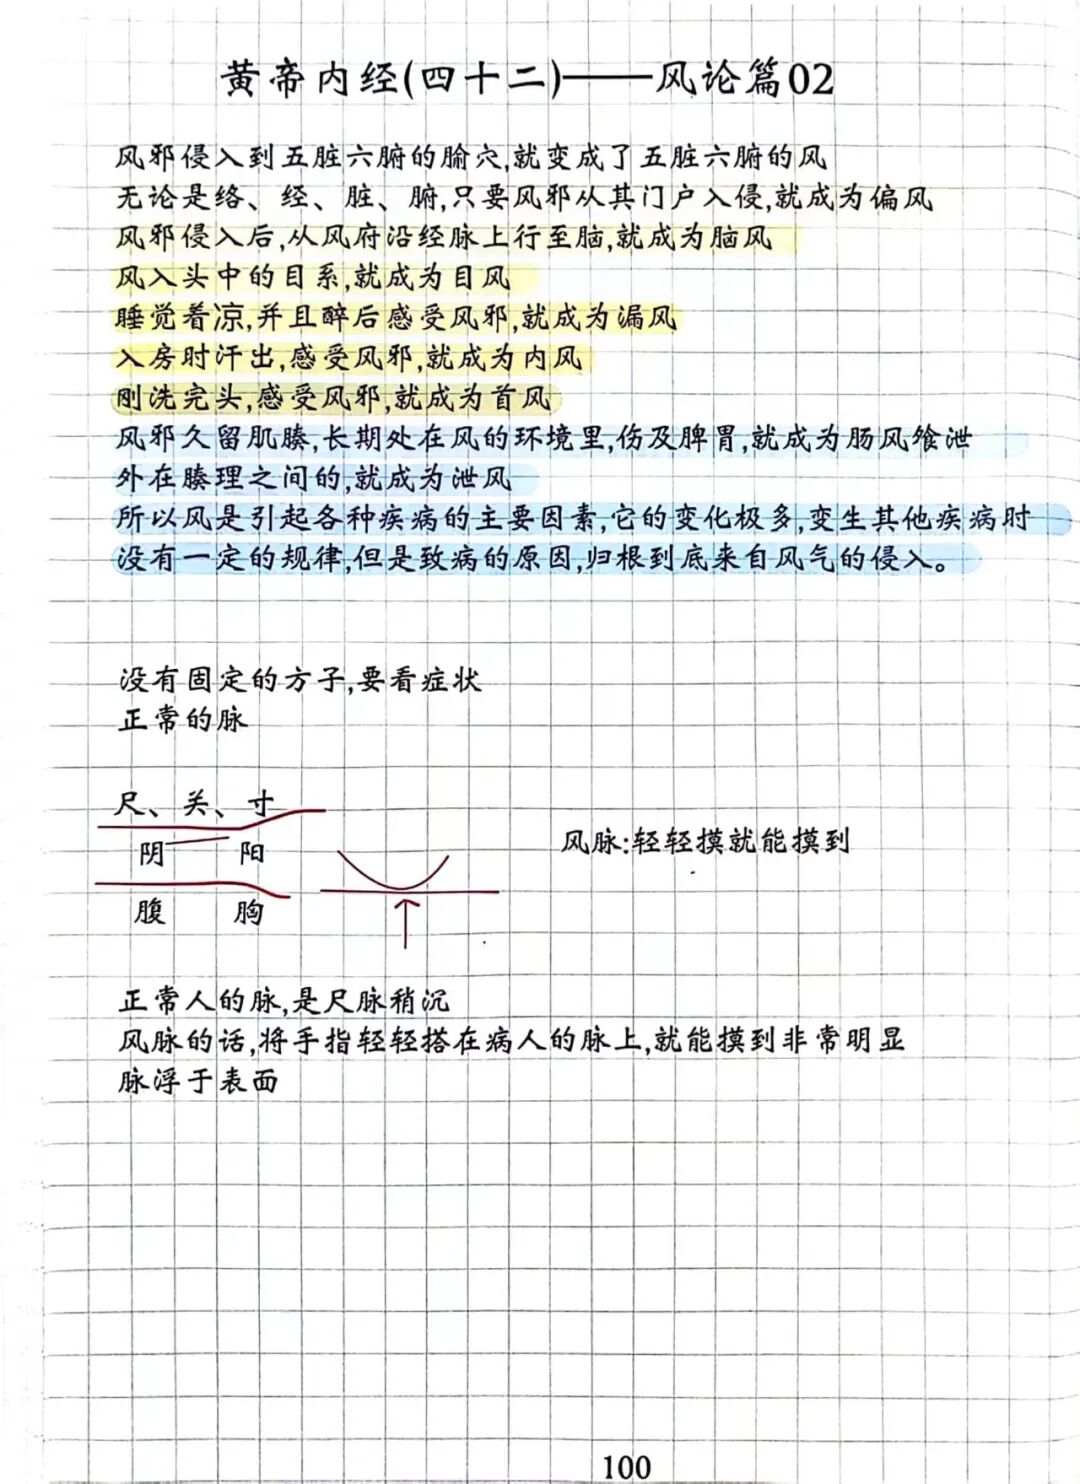 黄帝内经(四十二)——风论篇02
风邪侵入到五脏六腑的腧穴,就变成了五脏六腑的风
无论是络、经、脏、腑,只要风邪从其门户入侵,就成为偏风
风邪侵入后,从风府沿经脉上行至脑,就成为脑风
风入头中的目系,就成为目风
睡觉着凉,并且醉后感受风邪,就成为漏风
入房时汗出,感受风邪,就成为内风
刚洗完头,感受风邪,就成为首风
风邪久留肌腠,长期处在风的环境里,伤及脾胃,就成为肠风飧泄
外在腠理之间的,就成为泄风
所以风是引起各种疾病的主要因素,它的变化极多,变生其他疾病时
没有一定的规律,但是致病的原因,归根到底来自风气的侵入。
没有固定的方子,要看症状
正常的脉
尺、关、寸
阴 阳
腹 胸
风脉:轻轻摸就能摸到
正常人的脉,是尺脉稍沉
风脉的话,将手指轻轻搭在病人的脉上,就能摸到非常明显
脉浮于表面
100